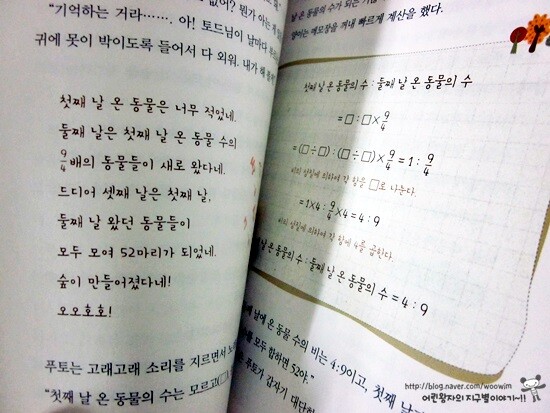 없어? 뭔가 아는 게
"기억하는 거라……. 아! 토드님이 날마다
귀에 못이 박이도록 들어서 다 외워. 내가 해
첫째 날 온 동물은 너무 적었네.
둘째 날은 첫째 날 온 동물 수의
9/4배의 동물들이 새로 왔다네.
드디어 셋째 날은 첫째 날,
둘째 날 왔던 동물들이
모두 모여 52마리가 되었네.
숲이 만들어졌다네!
오오호호!
푸토는 고래고래 소리를 지르면서
"첫째 날 온 동물의 수는 모르고(□
날 온 동물의 수가 되는
메모장을 꺼내 빠르게 계산을 했다.
첫째 날 온 동물의 수 : 둘째 날 온 동물의 수
=□:□×9/4
=(□÷□):(□÷□)×9/4=1:9/4
비의 성질에 의하여 각 항을 □로 나눈다.
=1×4:9/4×4=4:9
비의 성질에 의하여 각 항에 4를 곱한다.
날 온 동물의 수 : 둘째 날 온 동물의 수 = 4:9
날에 온 동물 수의 비는 4:9이고, 첫째
모두 합하면 52야."
푸토가 갑자기
http://blog.naver.com/woowim
어린왕자의 지구별이야기~!!